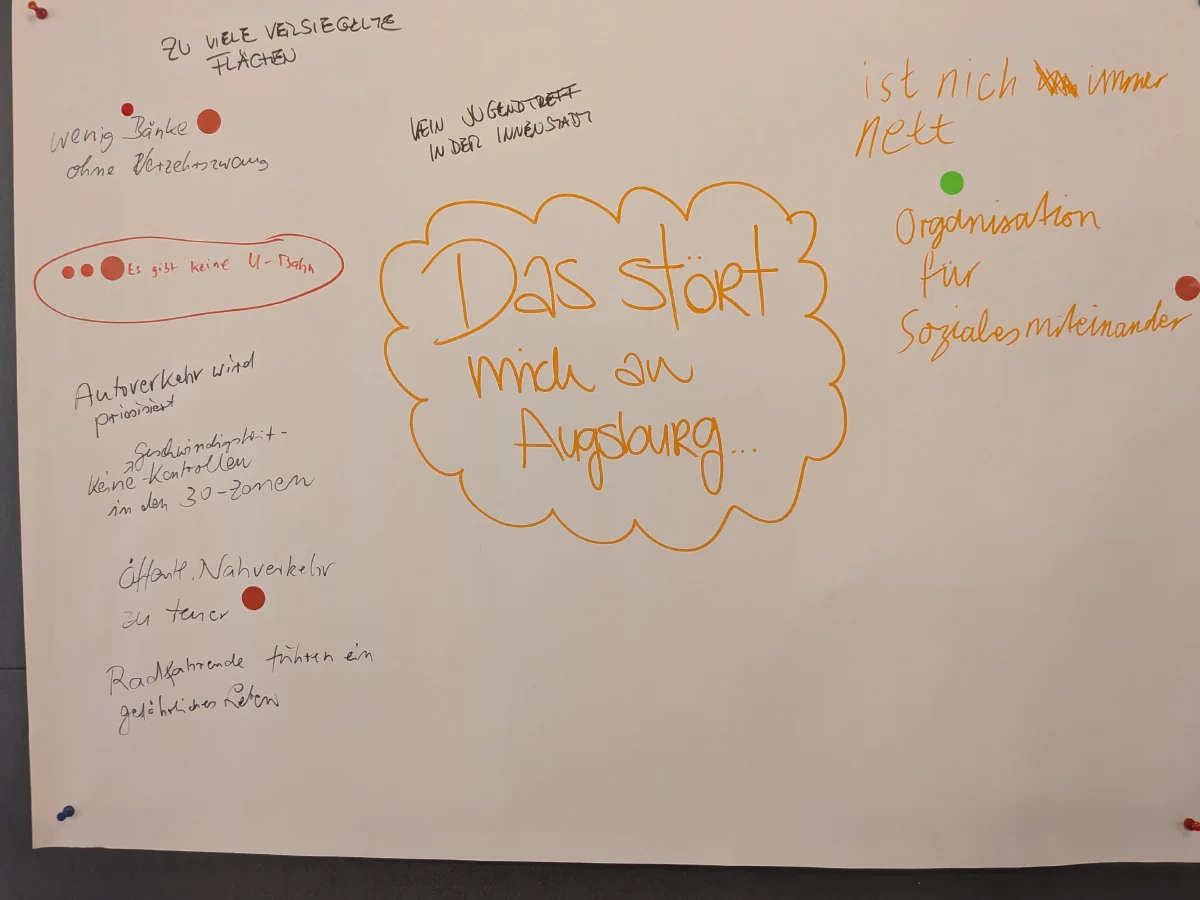 ZU VIELE VERSIEGELTE
FLÄCHEN
wenig Bänke
ohne Verzehrszwang
Es gibt keine U-Bahn
Autoverkehr wird
priorisiert
Geschwindigkeit-
keine Kontrollen
in den 30-Zonen
Öffentl. Nahverkehr
zu teuer
Radfahrende führen ein
gefährliches Leben
KEIN JUGENDTREFF
IN DER INNENSTADT
Das stört
mich an
Augsburg...
ist nich immer
nett
Organisation
für
Soziales miteinander